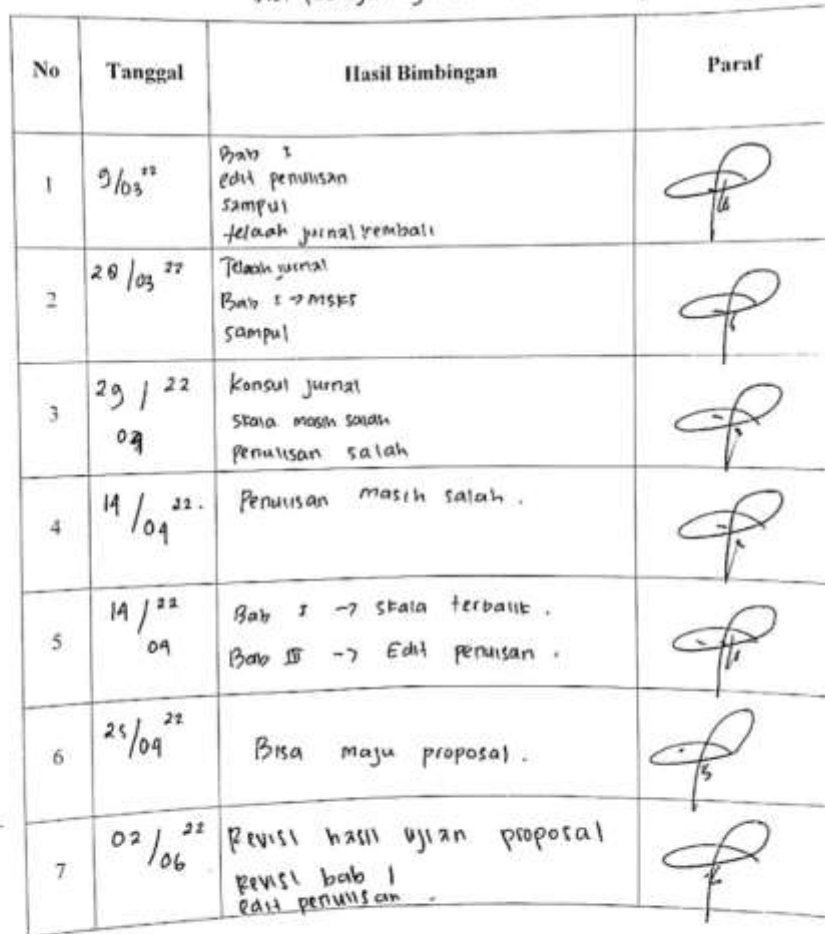 No Tanggal Hasil Bimbingan Paraf
1 9/03 22
Bab I
edit penulisan
sampul
telaah jurnal kembali
2 28/03 22
Telaah jurnal
Bab I → MSKS
sampul
3 29/04 22
Konsul jurnal
skala masih salah
penulisan salah
4 14/04 22.
Penulisan masih salah.
5 14/04 22
Bab I → skala terbalik.
Bab III → Edit penulisan.
6 25/04 22
Bisa maju proposal.
7 02/06 22
Revisi hasil ujian proposal
Revisi bab 1
edit penulisan.